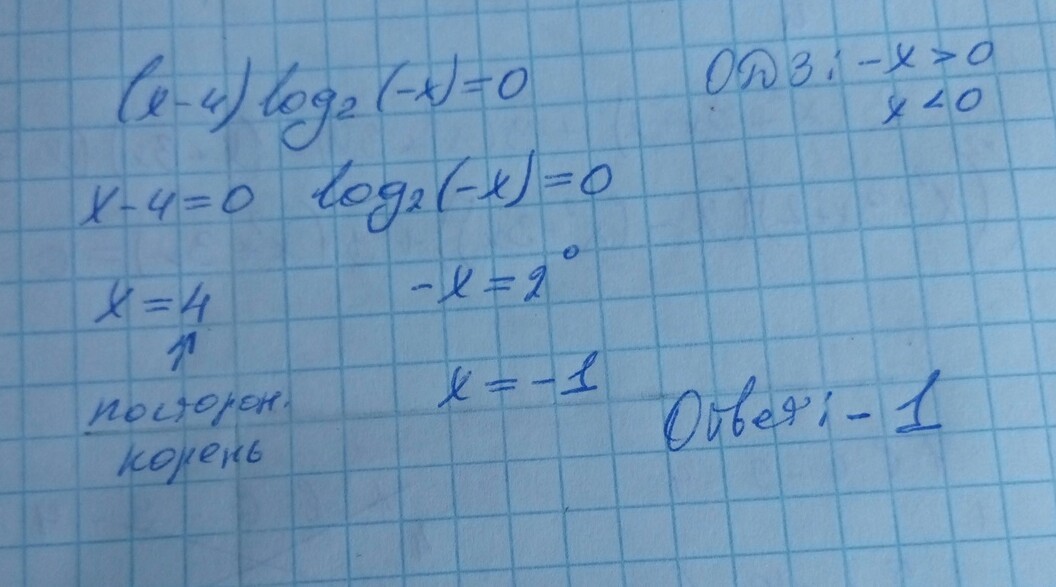 (x-4) log₂ (-x)=0 ОДЗ: -x>0
x<0
x-4=0 log₂(-x)=0
x=4 -x=2⁰
⇑
посторон. x=-1
корень Ответ: -1